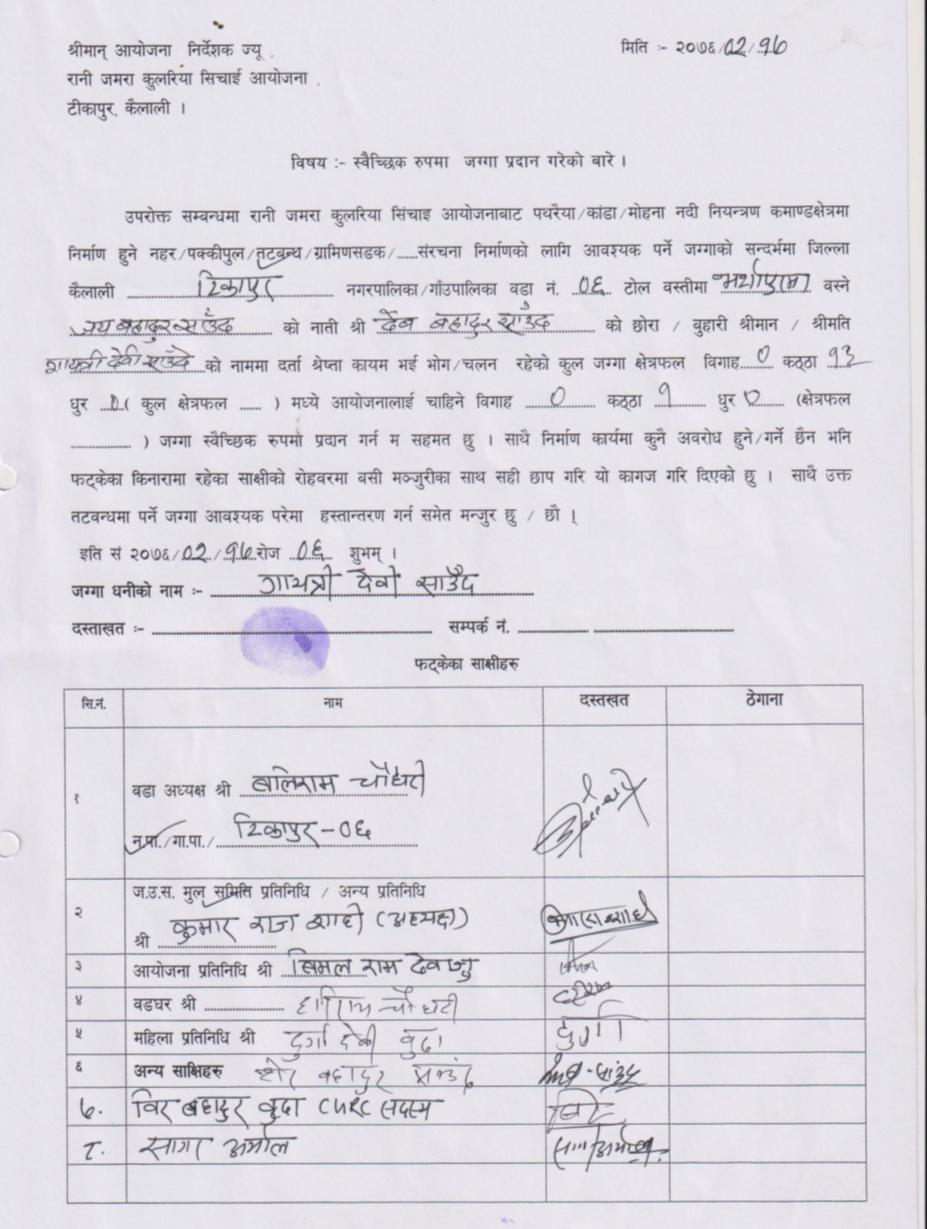 श्रीमान् आयोजना निर्देशक ज्यू . मिति :- २०७६/02/१७
रानी जमरा कुलरिया सिचाई आयोजना .
टीकापुर, कैलाली ।
विषय :- स्वैच्छिक रुपमा जग्गा प्रदान गरेको बारे ।
उपरोक्त सम्बन्धमा रानी जमरा कुलरिया सिंचाइ आयोजनाबाट पथरैया/कांडा/मोहना नदी नियन्त्रण कमाण्डक्षेत्रमा
निर्माण हुने नहर/पक्कीपुल/तटबन्ध/ग्रामिणसडक/......संरचना निर्माणको लागि आवश्यक पर्ने जग्गाको सन्दर्भमा जिल्ला
कैलाली टिकापुर नगरपालिका/गाँउपालिका वडा नं. ०६ टोल वस्तीमा वस्ने
जय बहादुर साउँद को नाती श्री देव बहादुर साउँद को छोरा / बुहारी श्रीमान / श्रीमति
गायत्री देवी साउँद को नाममा दर्ता श्रेष्ता कायम भई भोग/चलन रहेको कुल जग्गा क्षेत्रफल विगाह 0 कठ्ठा १३
धुर 0 ( कुल क्षेत्रफल ...... ) मध्ये आयोजनालाई चाहिने विगाह 0 कठ्ठा १ धुर 0 (क्षेत्रफल
............... ) जग्गा स्वैच्छिक रुपमा प्रदान गर्न म सहमत छु । साथै निर्माण कार्यमा कुनै अवरोध हुने/गर्ने छैन भनि
फट्केका किनारामा रहेका साक्षीको रोहवरमा बसी मञ्जुरीका साथ सही छाप गरि यो कागज गरि दिएको छु । साथै उक्त
तटवन्धमा पर्ने जग्गा आवश्यक परेमा हस्तान्तरण गर्न समेत मन्जुर छु / छौ ।
इति सं २०७६/02/१७ रोज ०६ शुभम् ।
जग्गा धनीको नाम :- गायत्री देवी साउँद
दस्ताखत :- सम्पर्क नं.
फट्केका साक्षीहरु
सि.नं. नाम दस्तखत ठेगाना
१ वडा अध्यक्ष श्री बलिराम चौधरी
न.पा./गा.पा./ टिकापुर-०६
२ ज.उ.स. मुल समिति प्रतिनिधि / अन्य प्रतिनिधि
श्री कुमार राज शाही (अध्यक्ष)
३ आयोजना प्रतिनिधि श्री बिमल राम देवज्यु
४ वडघर श्री चौधरी
५ महिला प्रतिनिधि श्री दुर्गा देवी वुढा दुर्गा
६ अन्य साक्षिहरु शेर बहादुर साउँद
७. विर बहादुर वुढा CMRC सदस्य
८. सागर